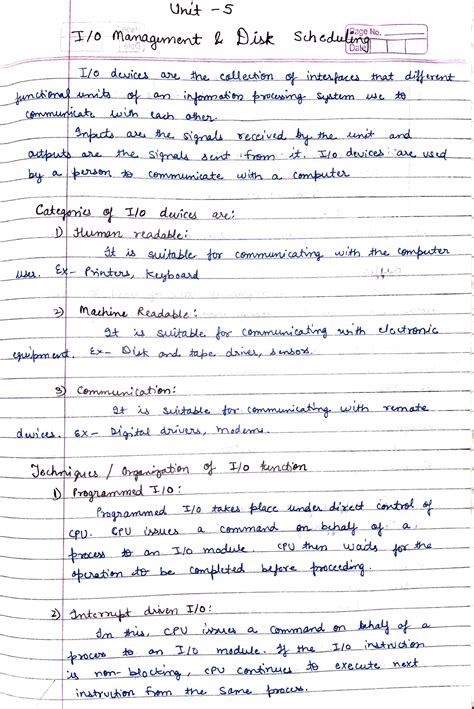 Unit - 5
I/O Management & Disk Scheduling
Page No.
Date
I/O devices are the collection of interfaces that different
functional units of an information processing system use to
communicate with each other.
Inputs are the signals received by the unit and
outputs are the signals sent from it. I/O devices are used
by a person to communicate with a computer
Categories of I/O devices are:
1) Human readable:
It is suitable for communicating with the computer
user. Ex- Printers, Keyboard
2) Machine Readable:
It is suitable for communicating with electronic
equipment. Ex- Disk and tape drives, sensors.
3) Communication:
It is suitable for communicating with remote
devices. Ex- Digital drivers, modems.
Techniques / Organization of I/O function
1) Programmed I/O:
Programmed I/O takes place under direct control of
CPU. CPU issues a command on behalf of a
process to an I/O module. CPU then waits for the
operation to be completed before proceeding.
2) Interrupt driven I/O:
In this, CPU issues a command on behalf of a
process to an I/O module. If the I/O instruction
is non-blocking, CPU continues to execute next
instruction from the same process.